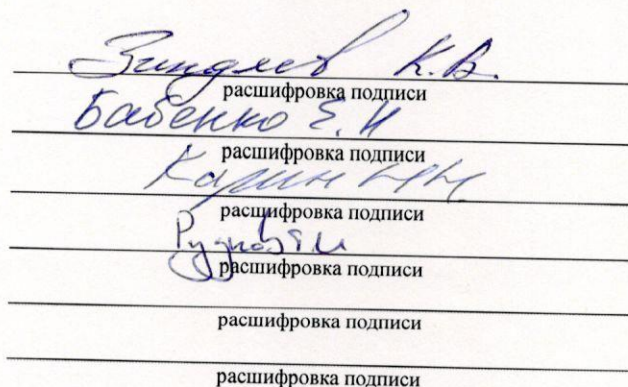 К.В.
расшифровка подписи
Бабенко Е.Н
расшифровка подписи
расшифровка подписи
расшифровка подписи
расшифровка подписи
расшифровка подписи